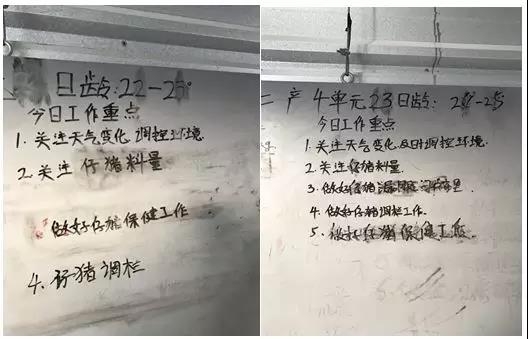 日龄:22-2
今日工作重点
1. 关注天气变化 调控环境
2. 关注仔猪料量
做好仔猪保健工作
4. 仔猪调栏
二产4单元23日龄: 2
今日工作重点
1. 关注天气变化及时调控环境.
2. 关注仔猪料量
3. 做好仔猪
4. 做好仔猪调栏工作.
5. 做好仔猪保健工作.